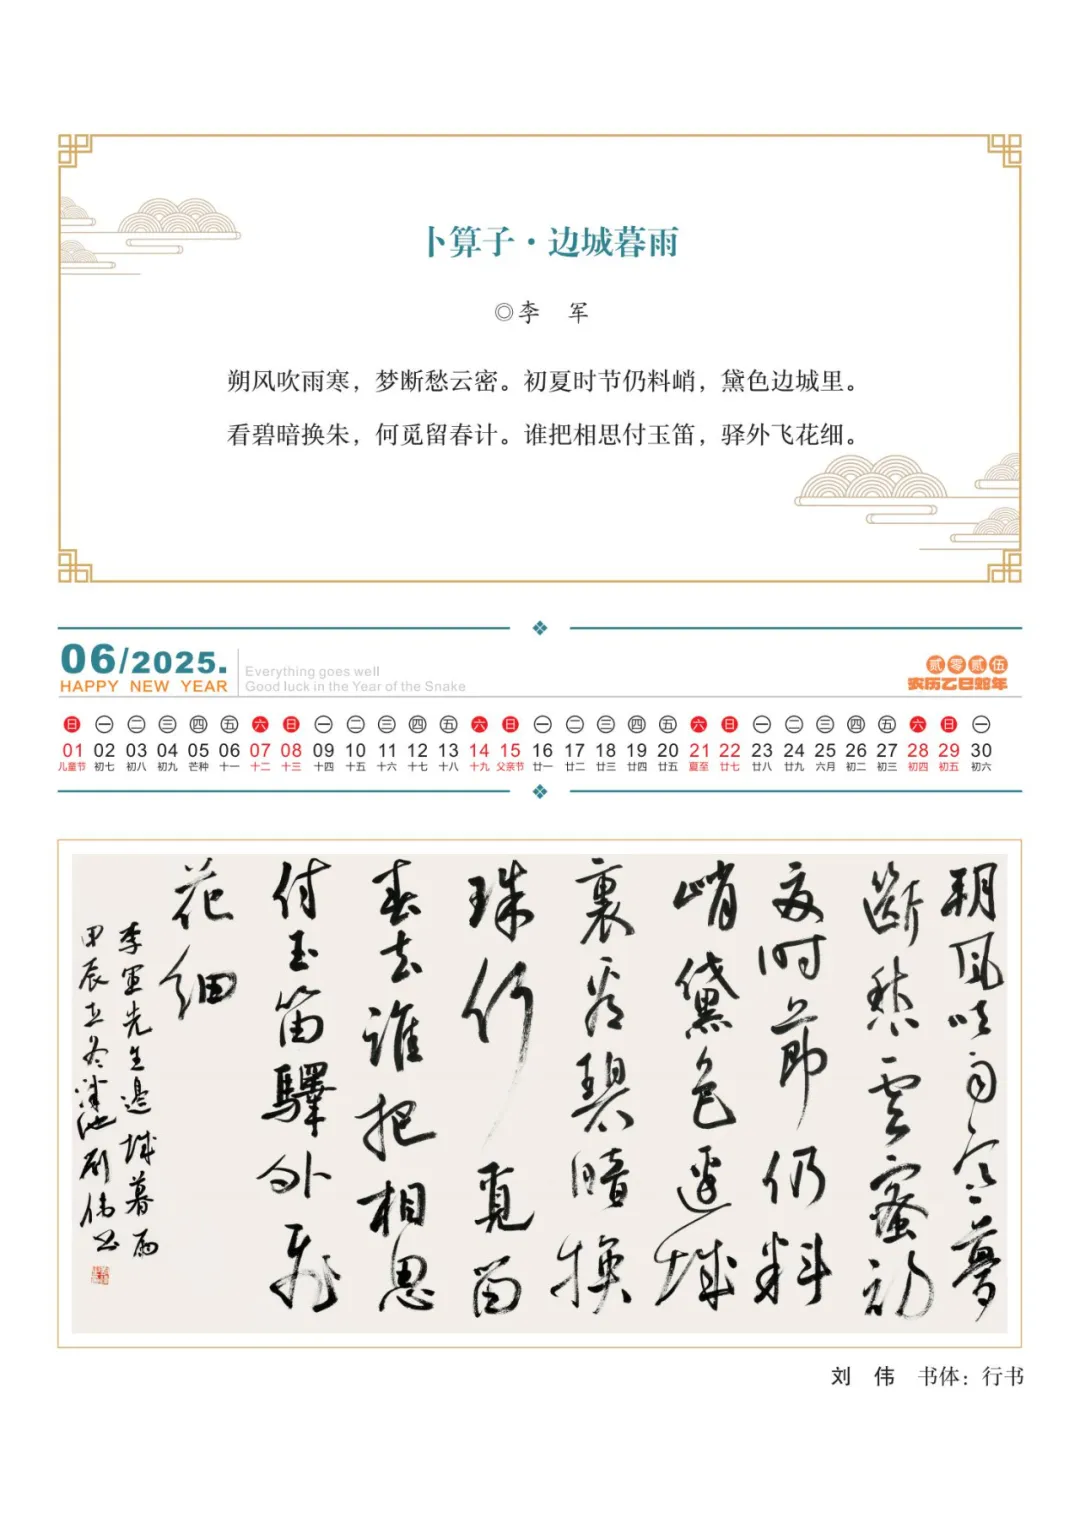 卜算子·边城暮雨
◎李 军
朔风吹雨寒，梦断愁云密。初夏时节仍料峭，黛色边城里。
看碧暗换朱，何觅留春计。谁把相思付玉笛，驿外飞花细。
06/2025.
HAPPY NEW YEAR
Everything goes well
Good luck in the Year of the Snake
贰零贰伍
农历乙巳蛇年
日 一 二 三 四 五 六 日 一 二 三 四 五 六 日 一 二 三 四 五 六 日 一 二 三 四 五 六 日 一
01 02 03 04 05 06 07 08 09 10 11 12 13 14 15 16 17 18 19 20 21 22 23 24 25 26 27 28 29 30
儿童节 初七 初八 初九 芒种 十一 十二 十三 十四 十五 十六 十七 十八 十九 父亲节 廿一 廿二 廿三 廿四 廿五 夏至 廿七 廿八 廿九 六月 初二 初三 初四 初五 初六
朔风吹雨寒梦
断愁云蜜初
夏时节仍料
峭黛色边城
裏看碧暗换
珠何觅留
春去谁把相思
付玉笛驛外飛
花细
李军先生边城暮雨
甲辰立冬 池刘伟书
刘 伟 书体：行书